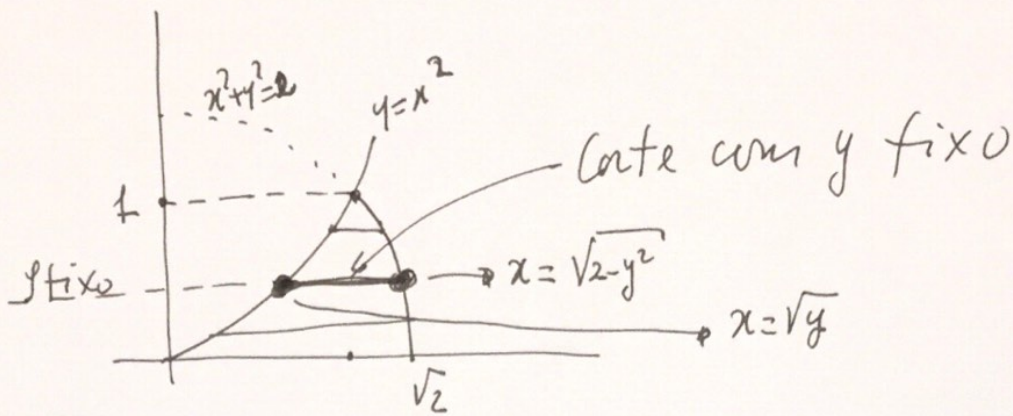 x²+y²=2
y=x²
Corte com y fixo
1
y fixo
x=√2-y²
x=√y
√2